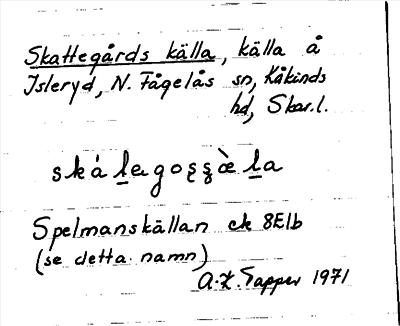 Skattegårds källa, källa å
Isleryd, N. Fågelås sn, Kåkinds
hd, Skar.l.
Spelmanskällan ek 8E1b
(se detta namn)
A.Z. Tapper 1971